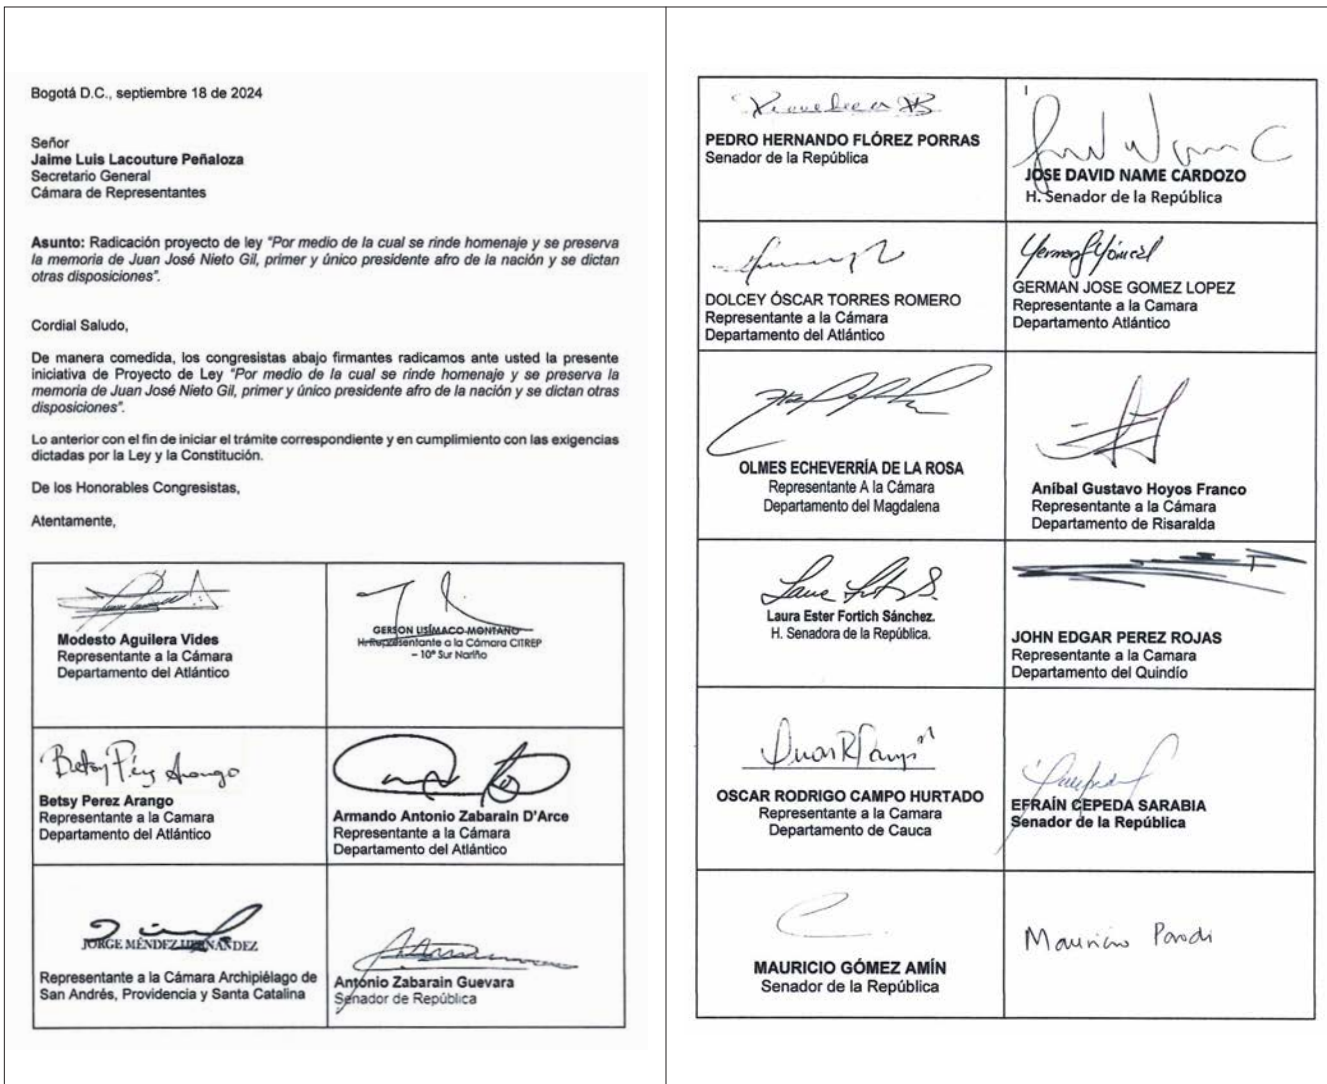 Bogotá D.C., septiembre 18 de 2024
Señor
Jaime Luis Lacouture Peñaloza
Secretario General
Cámara de Representantes
Asunto: Radicación proyecto de ley "Por medio de la cual se rinde homenaje y se preserva
la memoria de Juan José Nieto Gil, primer y único presidente afro de la nación y se dictan
otras disposiciones".
Cordial Saludo,
De manera comedida, los congresistas abajo firmantes radicamos ante usted la presente
iniciativa de Proyecto de Ley "Por medio de la cual se rinde homenaje y se preserva la
memoria de Juan José Nieto Gil, primer y único presidente afro de la nación y se dictan otras
disposiciones".
Lo anterior con el fin de iniciar el trámite correspondiente y en cumplimiento con las exigencias
dictadas por la Ley y la Constitución.
De los Honorables Congresistas,
Atentamente,
Modesto Aguilera Vides
Representante a la Cámara
Departamento del Atlántico
GERSON LISÍMACO MONTAÑO
H. Representante a la Cámara CITREP
– 10° Sur Nariño
Betsy Pérez Arango
Betsy Perez Arango
Representante a la Camara
Departamento del Atlántico
Armando Antonio Zabarain D'Arce
Representante a la Cámara
Departamento del Atlántico
JORGE MÉNDEZ HERNÁNDEZ
Representante a la Cámara Archipiélago de
San Andrés, Providencia y Santa Catalina
Antonio Zabarain Guevara
Senador de República
PEDRO HERNANDO FLÓREZ PORRAS
Senador de la República
JOSE DAVID NAME CARDOZO
H. Senador de la República
DOLCEY ÓSCAR TORRES ROMERO
Representante a la Cámara
Departamento del Atlántico
GERMAN JOSE GOMEZ LOPEZ
Representante a la Camara
Departamento Atlántico
OLMES ECHEVERRÍA DE LA ROSA
Representante A la Cámara
Departamento del Magdalena
Aníbal Gustavo Hoyos Franco
Representante a la Cámara
Departamento de Risaralda
Laura Ester Fortich Sánchez.
H. Senadora de la República.
JOHN EDGAR PEREZ ROJAS
Representante a la Camara
Departamento del Quindío
OSCAR RODRIGO CAMPO HURTADO
Representante a la Camara
Departamento de Cauca
EFRAÍN CEPEDA SARABIA
Senador de la República
MAURICIO GÓMEZ AMÍN
Senador de la República
Mauricio Parodi